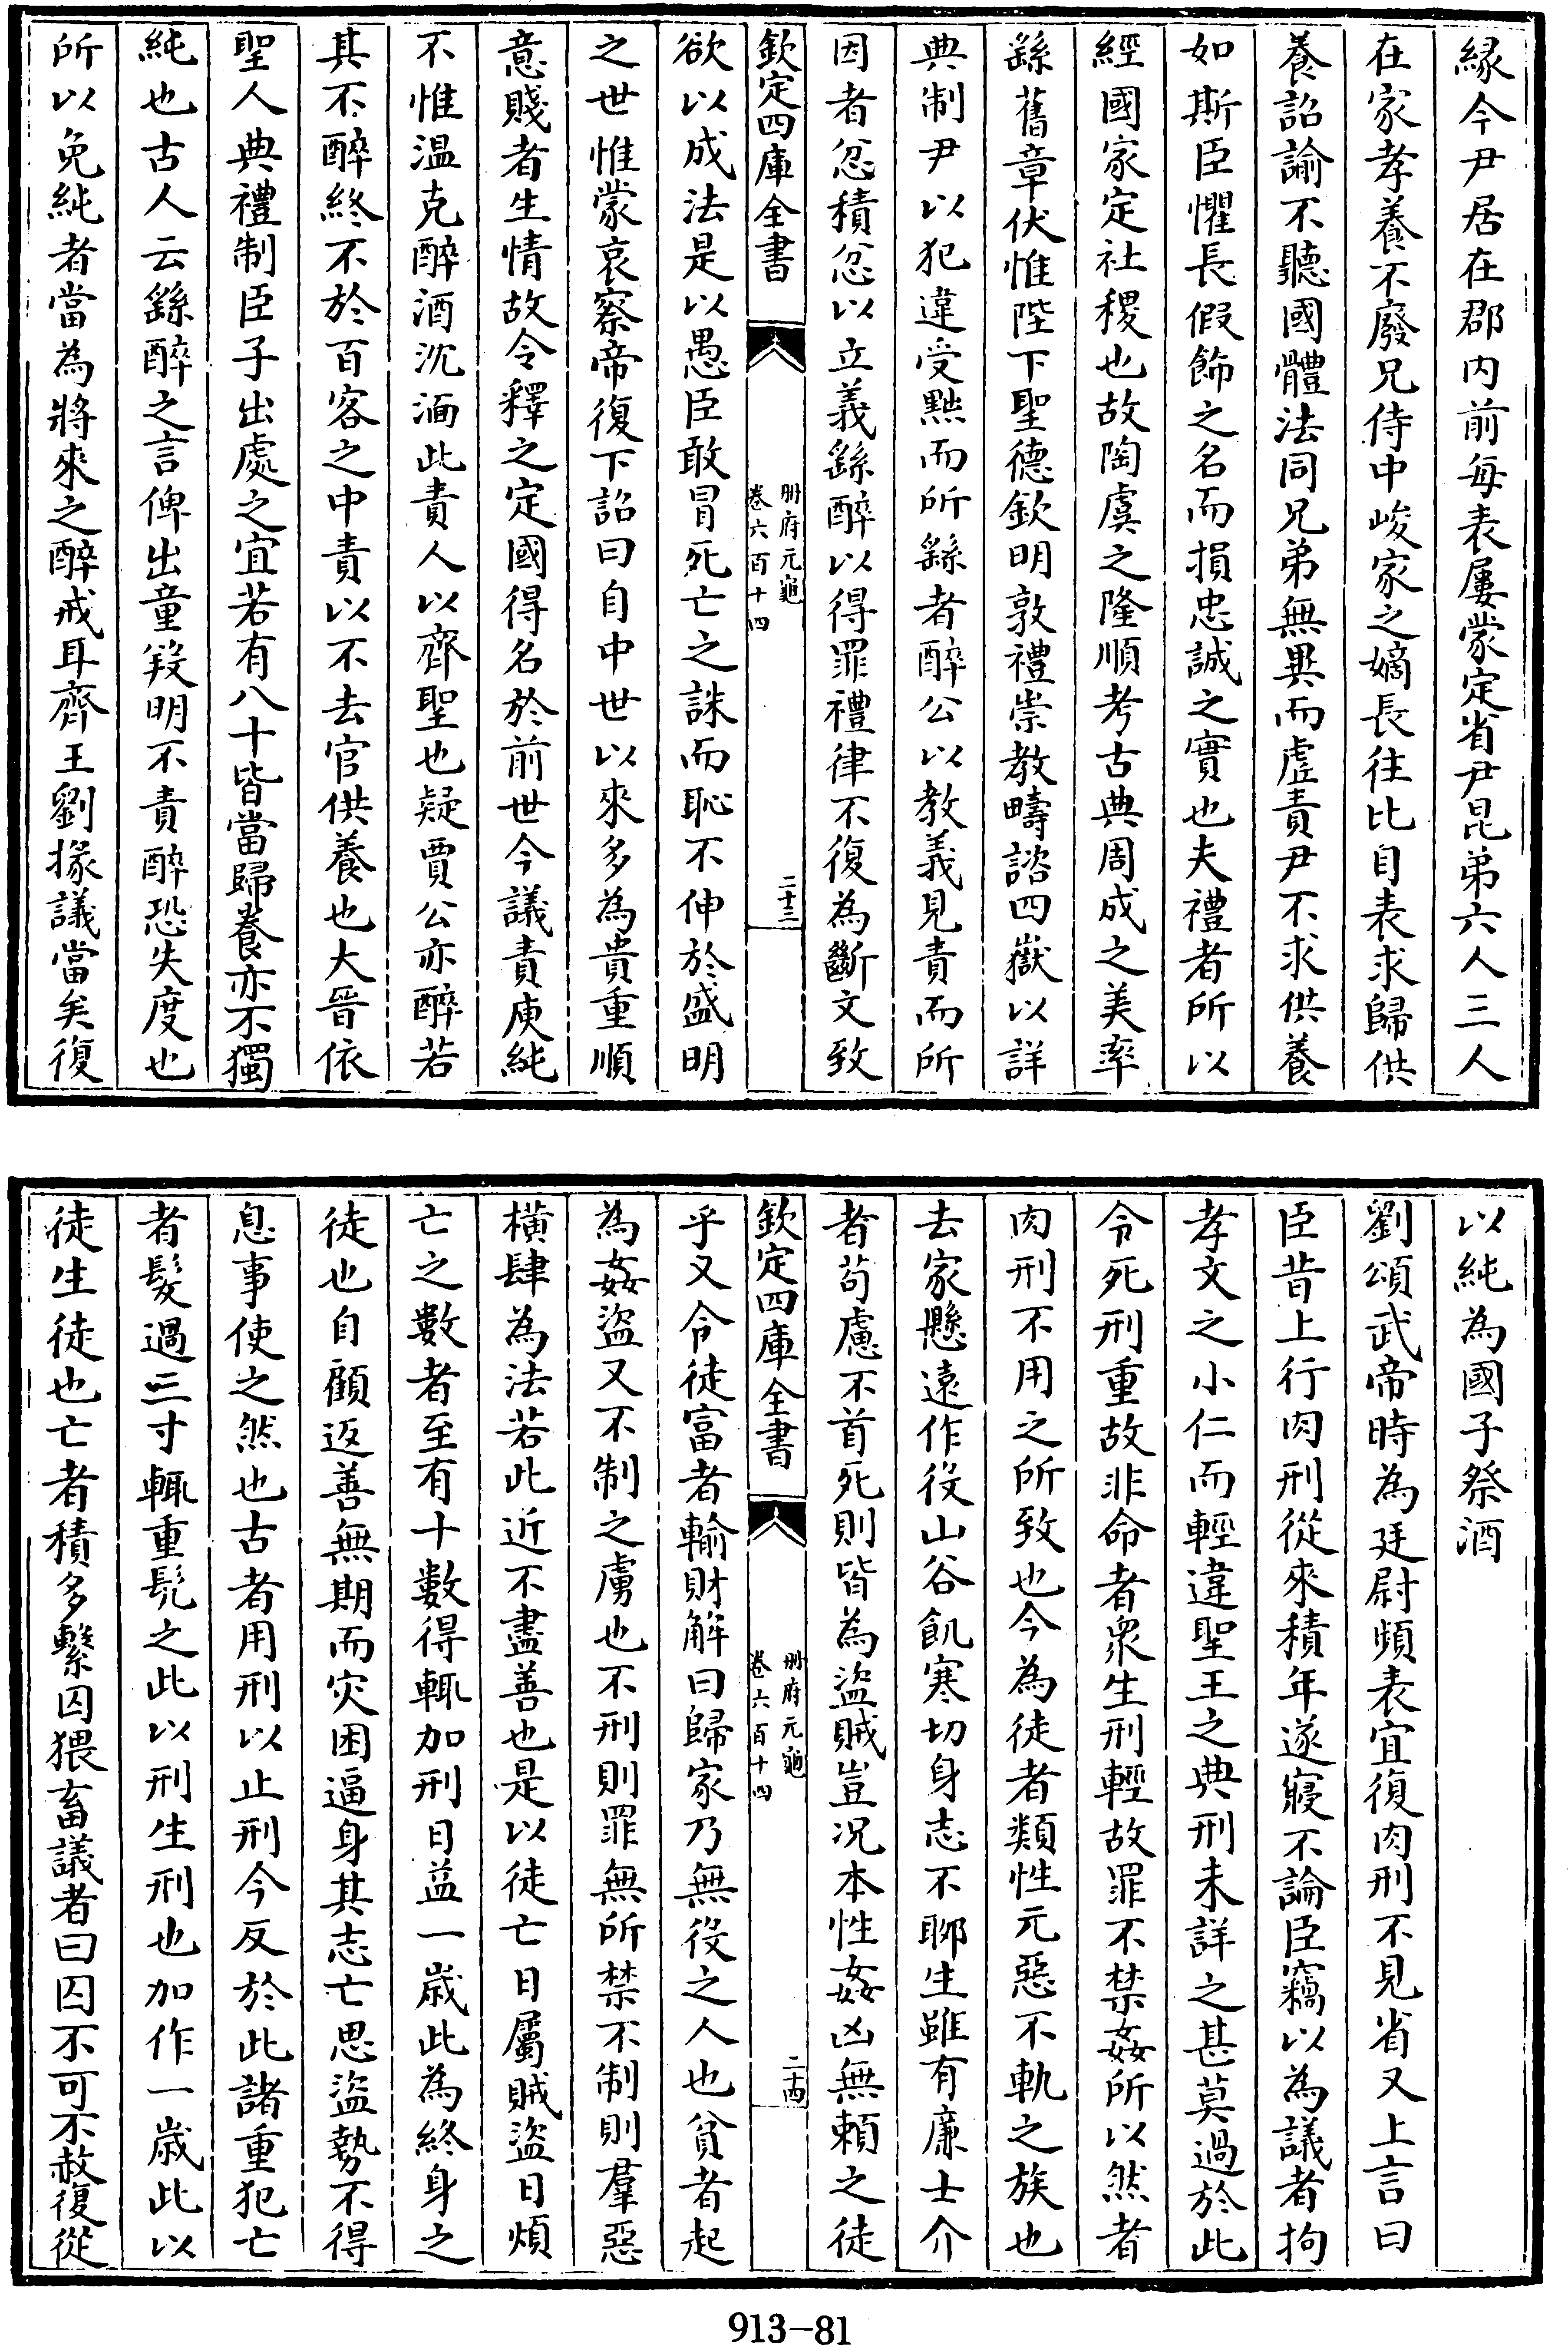 縁今尹居在郡内前每表屢蒙定省尹昆弟六人三人
在家孝養不廢兄侍中峻家之嫡長往比自表求歸供
養詔諭不聽國體法同兄弟無異而虛責尹不求供養
如斯臣懼長假飾之名而損忠誠之實也夫禮者所以
經國家定社稷也故陶虞之隆順考古典周成之美率
繇舊章伏惟陛下聖德欽明敦禮崇教疇諮四嶽以詳
典制尹以犯違受黜而所繇者醉公以教義見責而所
因者忿積忿以立義繇醉以得罪禮律不復為斷文致
欽定四庫全書
冊府元龜
卷六百十四
二十三
欲以成法是以愚臣敢冒死亡之誅而恥不伸於盛明
之世惟蒙哀察帝復下詔曰自中世以來多為貴重順
意賤者生情故令釋之定國得名於前世今議責庾純
不惟温克醉酒沈湎此責人以齊聖也疑賈公亦醉若
其不醉終不於百客之中責以不去官供養也大晉依
聖人典禮制臣子出處之宜若有八十皆當歸養亦不獨
純也古人云繇醉之言俾出童羖明不責醉恐失度也
所以免純者當為將來之醉戒耳齊王劉掾議當矣復
以純為國子祭酒
劉頌武帝時為廷尉頻表宜復肉刑不見省又上言曰
臣昔上行肉刑從來積年遂寢不論臣竊以為議者拘
孝文之小仁而輕違聖王之典刑未詳之甚莫過於此
今死刑重故非命者衆生刑輕故罪不禁姦所以然者
肉刑不用之所致也今為徒者類性元惡不軌之族也
去家懸遠作役山谷飢寒切身志不聊生雖有廉士介
者苟慮不首死則皆為盜賊豈况本性姦凶無頼之徒
欽定四庫全書
冊府元龜
卷六百十四
二十四
乎又令徒富者輸財解曰歸家乃無役之人也貧者起
為姦盜又不制之虜也不刑則罪無所禁不制則羣惡
橫肆為法若此近不盡善也是以徒亡日屬賊盜日煩
亡之數者至有十數得輒加刑日益一歲此為終身之
徒也自顧返善無期而灾困逼身其志亡思盜勢不得
息事使之然也古者用刑以止刑今反於此諸重犯亡
者髮過三寸輒重髠之此以刑生刑也加作一歲此以
徒生徒也亡者積多繫囚猥畜議者曰囚不可不赦復從
913-81